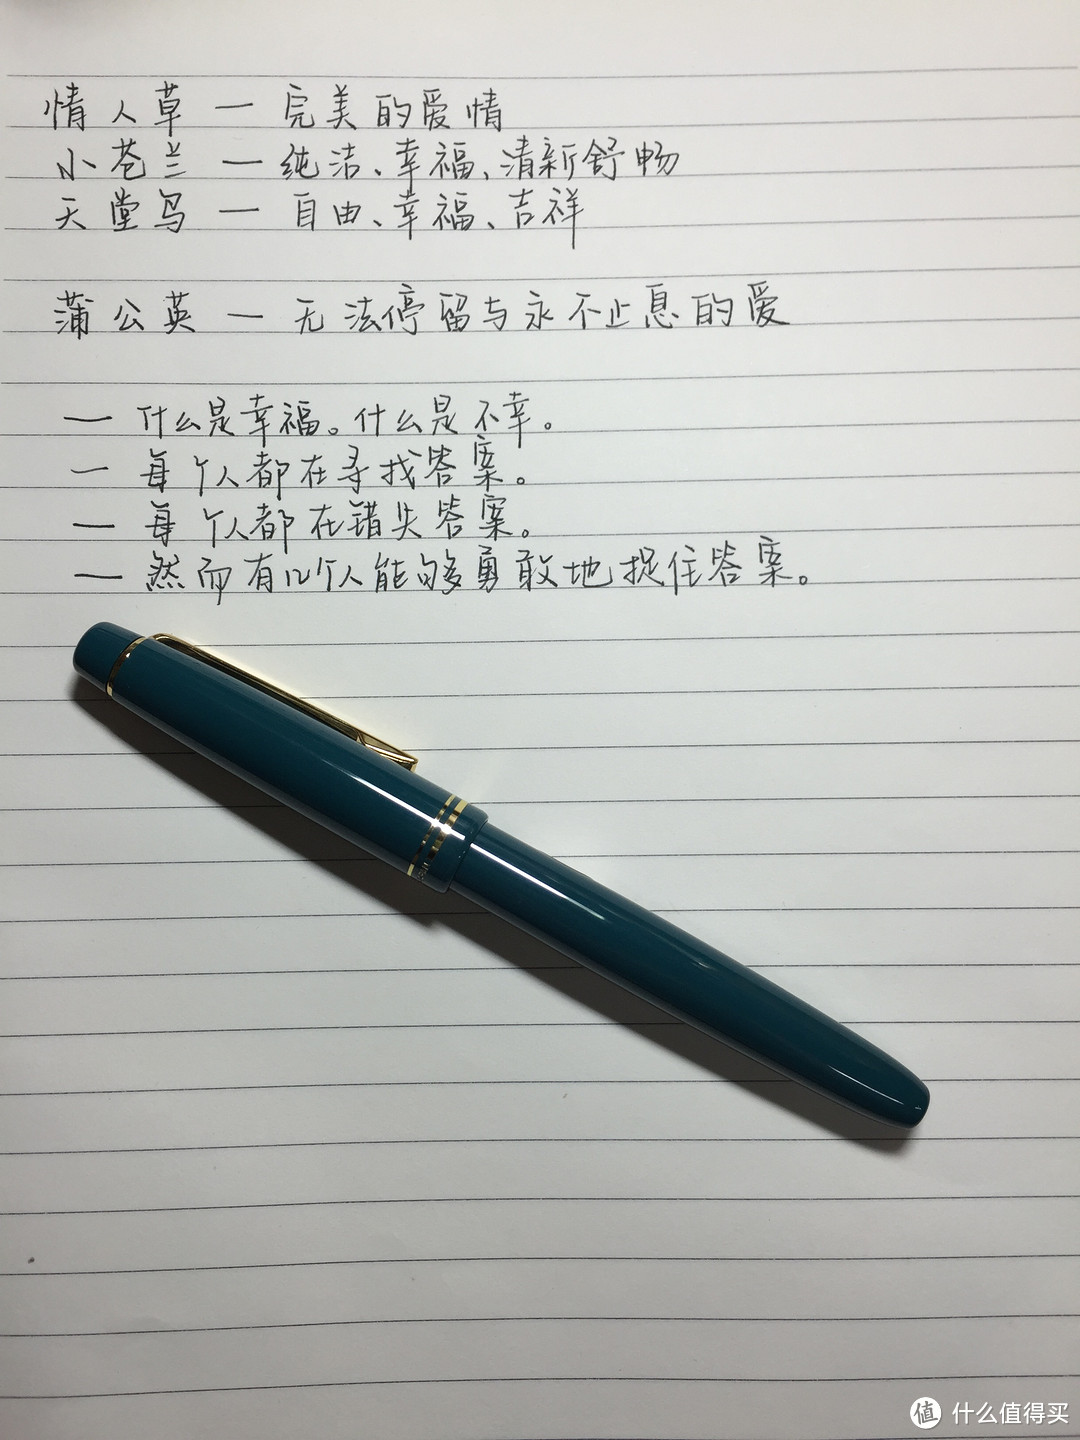 情人草 — 完美的爱情
小苍兰 — 纯洁、幸福、清新舒畅
天堂鸟 — 自由、幸福、吉祥
蒲公英 — 无法停留与永不止息的爱
— 什么是幸福。什么是不幸。
— 每个人都在寻找答案。
— 每个人都在错失答案。
— 然而有几个人能够勇敢地捉住答案。
值 什么值得买